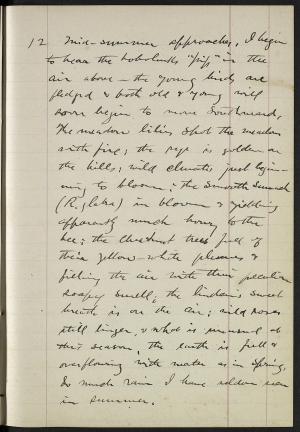 12 Mid-summer approaches, I begin
to hear the bobolinks "pip" in the
air above — the young birds are
fledged & both old & young will
soon begin to move Southward.
The meadow lilies spot the meadow
with fire; the rye is golden on
the hills; wild clematis just begin-
ning to bloom; the Smooth Sumach
(R. glabra) in bloom & yielding
apparently much honey to the
bee; the Chestnut trees full of
their yellow-white plumes &
filling the air with their peculiar
soapy smell; the linden's sweet
breath is on the air; wild roses
still linger, & what is unusual at
this season, the earth is full &
overflowing with water as in Spring.
So much rain I have seldom seen
in summer.